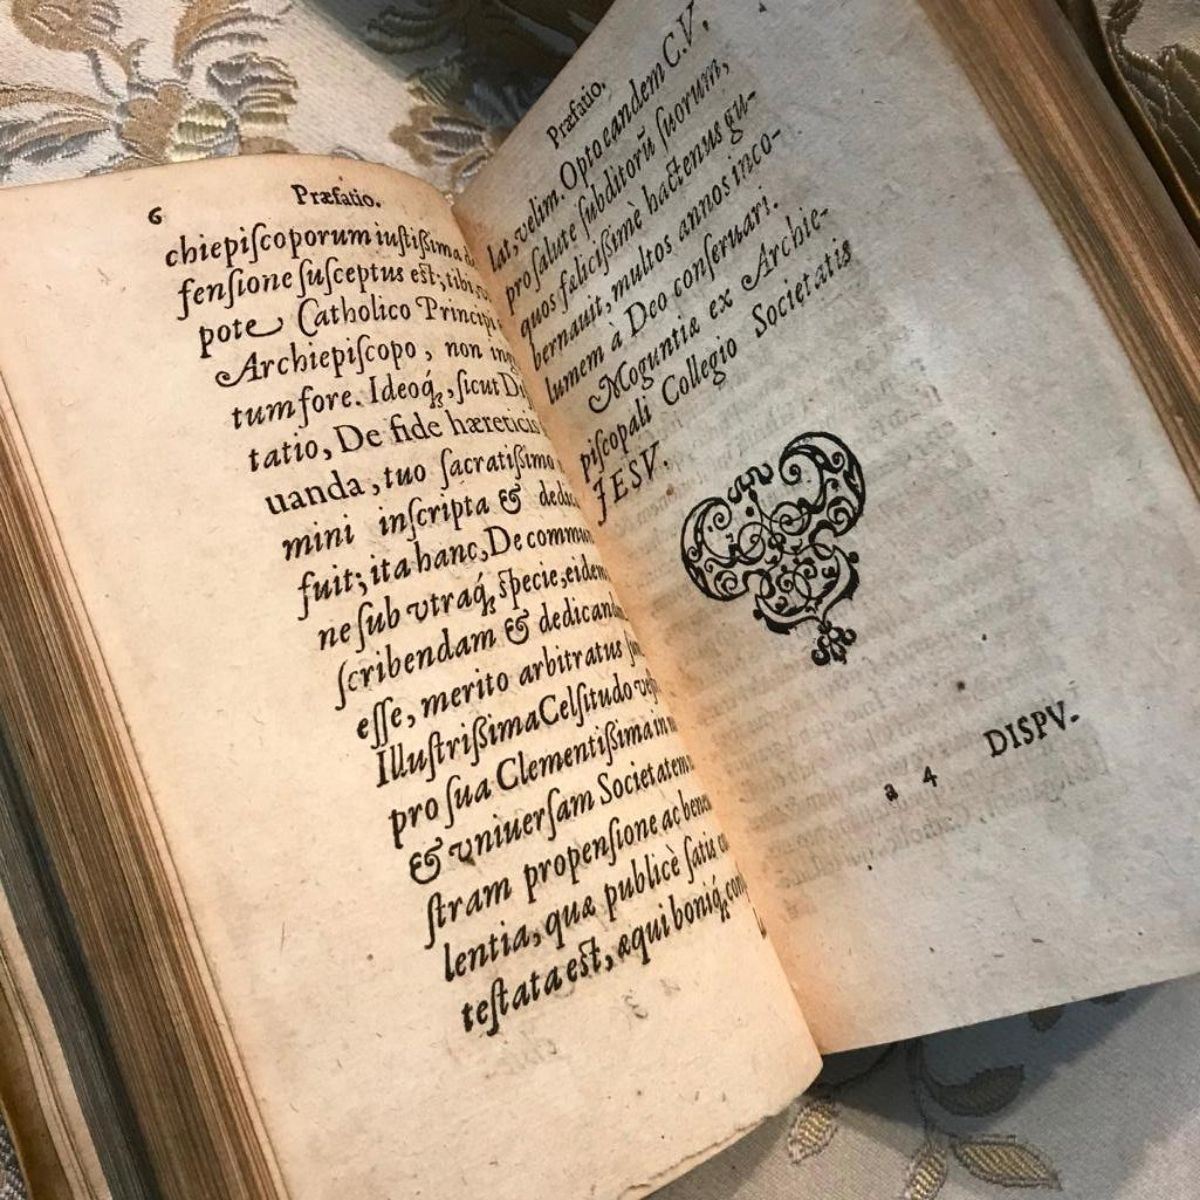 6
Præfatio.
chiepiſcoporum iuſtiſsima
fenſione ſuſceptus eſt; tibi,
pote Catholico
Archiepiſcopo, non
tum fore. Ideoq́;, ſicut
tatio, De fide hæreticis
uanda, tuo ſacratiſsimo
mini inſcripta &
fuit; ita hanc, De
ne ſub vtraq́; ſpecie, eidem
ſcribendam &
eſſe, merito arbitratus
Illuſtriſsima Celſitudo
pro ſua Clementiſsima in
& vniuerſam Societatem
ſtram propenſione ac
lentia, quæ publicè ſatis
teſtata eſt, æqui boniq́;
Præfatio.
lat, velim. Opto eandem C. V.
pro ſalute ſubditorũ ſuorum,
quos faliciſsimè hactenus gu-
bernauit, multos annos inco-
lumem à Deo conſeruari.
Moguntiæ ex Archie-
piſcopali Collegio Societatis
JESV.
a 4
DISPV-